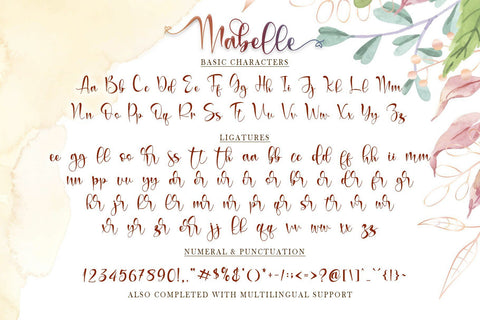 Mabelle
BASIC CHARACTERS
Aa Bb Cc Dd Ee Ff Gg Hh Ii Jj Kk Ll Mm
Nn Oo Pp Qq Rr Ss Tt Uu Vv Ww Xx Yy Zz
LIGATURES
ee gg ll oo rr ss tt th aa bb cc dd ff hh ii mm
nn pp uu yy ar ir ur er or br cr dr fr gr
hr jr kr lr mr nr pr qr sr tr vr wr
xr yr zr rr jj kk qq vv ww xx zz
NUMERAL & PUNCTUATION
ALSO COMPLETED WITH MULTILINGUAL SUPPORT